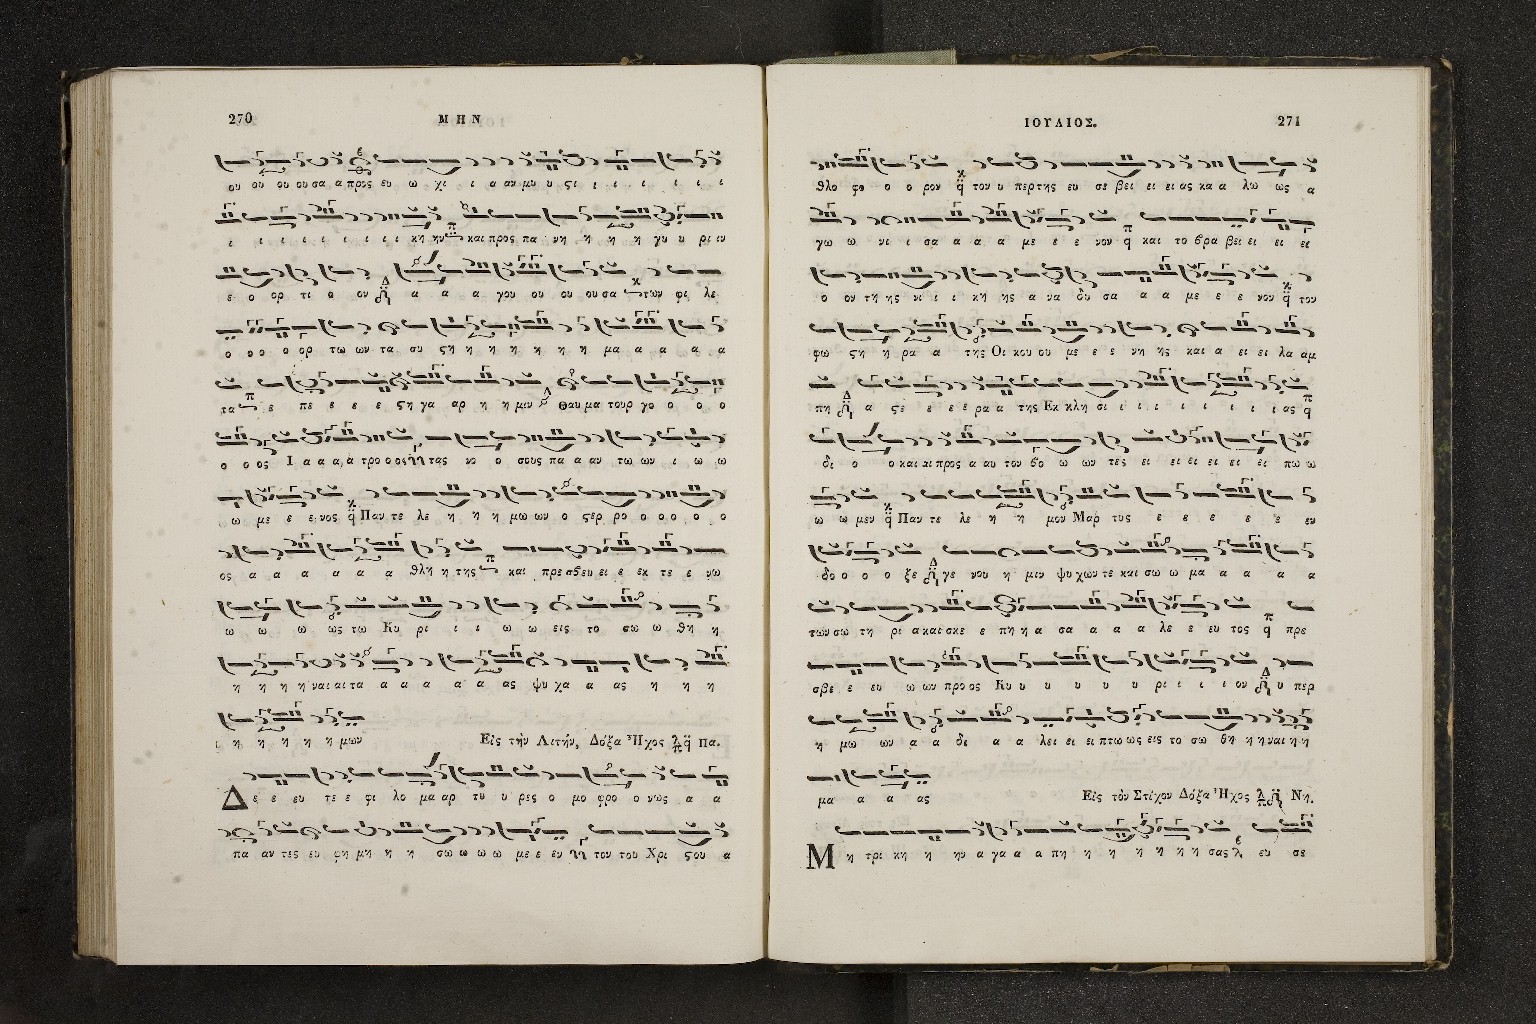 270 ΜΗΝ
ου ου ου ου σα α προς ευ ω χι ι α αν μυ υ ϛι ι ι ι ι ι ι
ι ι ι ι ι ι ι ι κη ην και προς πα νη η η η γυ υ ρι ιν
ε ο ορ τι ο ον α α α γου ου ου ου σα των φι λε
ο ο ο ο ορ τω ων τα συ ϛη η η η η η η μα α α α α
τα ε πε ε ε ε ϛη γα αρ η η μιν Θαυ μα τουρ γο ο ο ο
ο ο ος Ι α α α α τρο ο ος τας νο ο σους πα α αν τω ων ι ω ω
ω με ε ε νος Παν τε λε η η η μω ων ο ϛερ ρο ο ο ο ο ο
ος α α α α α α θλη η της και πρε σβευ ει ε εκ τε ε νω
ω ω ω ως τω Κυ ρι ι ι ω ω εις το σω ω θη η
η η η η ναι αι τα α α α α α ας ψυ χα α ας η η η
η η η η η μων Εἰς τὴν Λιτὴν, Δόξα Ἦχος Πα.
Δε ε ευ τε ε φι λο μα αρ τυ υ ρες ο μο φρο ο νως α α
πα αν τες ευ φη μη η η σω ω ω ω με ε εν τον του Χρι ϛου α
ΙΟΥΛΙΟΣ. 271
θλο φο ο ο ρον τον υ περ της ευ σε βει ει ει ας κα α λω ως α
γω ω νι ι σα α α α με ε ε νον και το βρα βει ει ει ει
ο ον τη ης νι ι ι κη ης α να δυ σα α α με ε ε νον τον
φω ϛη η ρα α της Οι κου ου με ε ε νη ης και α ει ει λα αμ
πη α ϛε ε ε ε ρα α της Εκ κλη σι ι ι ι ι ι ι ι ας
δι ο ο και αι προς α αυ τον βο ω ων τες ει ει ει ει ει ει πω ω
ω ω μεν Παν τε λε η η μον Μαρ τυς ε ε ε ε ε εν
δο ο ο ο ξε γε νου η μιν ψυ χων τε και σω ω μα α α α α
των σω τη ρι α και σκε ε πη η α σα α α α λε ε ευ τος πρε
σβε ε ευ ω ων προ ος Κυ υ υ υ υ υ ρι ι ι ι ον υ περ
η μω ων α α δι α α λει ει ει πτω ως εις το σο θη η η ναι η η
μα α α ας Εἰς τὸν Στίχον Δόξα Ἦχος Νη.
Μη τρι κη η ην α γα α α πη η η η η η η σας ευ σε